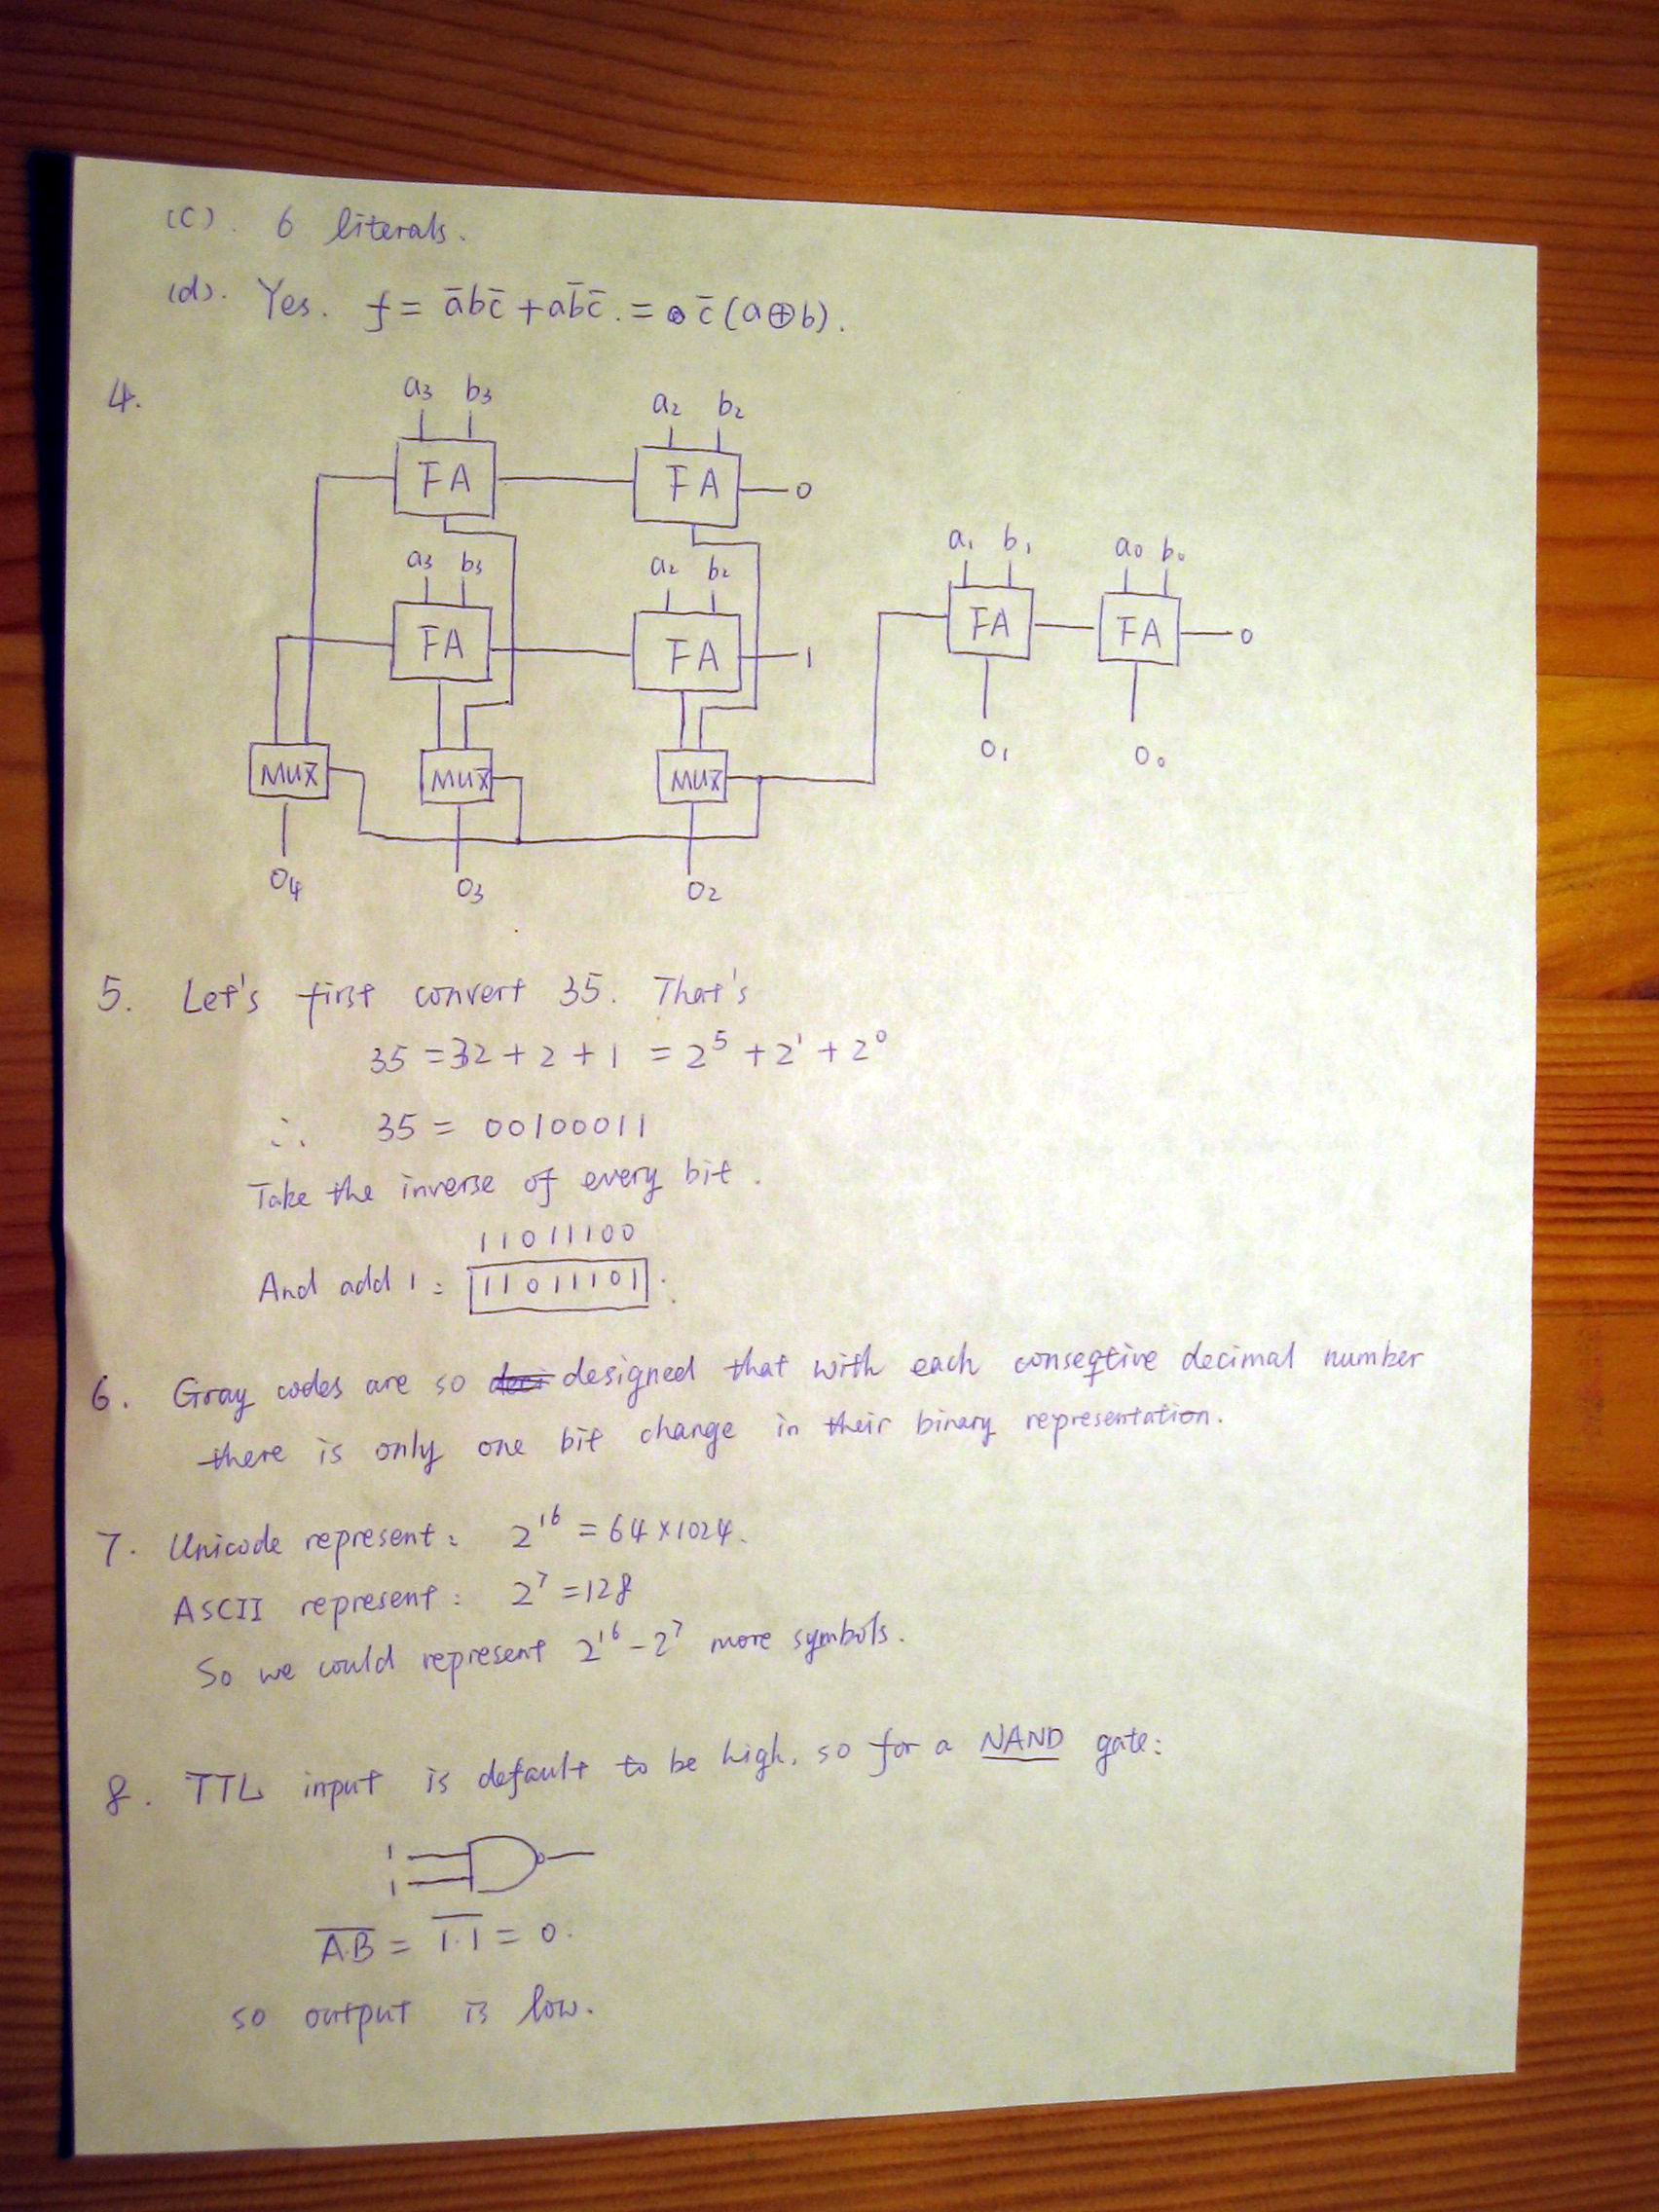 (c). 6 literals.
(d). Yes. f = a̅bc̅ + ab̅c̅. = c̅(a⊕b).
4.
a₃ b₃
a₂ b₂
FA
FA
0
a₃ b₃
a₂ b₂
a₁ b₁
a₀ b₀
FA
FA
1
FA
FA
0
MUX
MUX
MUX
O₁
O₀
O₄
O₃
O₂
5. Let's first convert 35. That's
35 = 32 + 2 + 1 = 2⁵ + 2¹ + 2⁰
∴ 35 = 00100011
Take the inverse of every bit.
11011100
And add 1: 11011101.
6. Gray codes are so designed that with each conseqtive decimal number
there is only one bit change in their binary representation.
7. Unicode represent: 2¹⁶ = 64×1024.
ASCII represent: 2⁷ = 128
So we could represent 2¹⁶ - 2⁷ more symbols.
8. TTL input is default to be high, so for a NAND gate:
1
1
A̅·̅B̅ = 1̅·̅1̅ = 0.
so output is low.